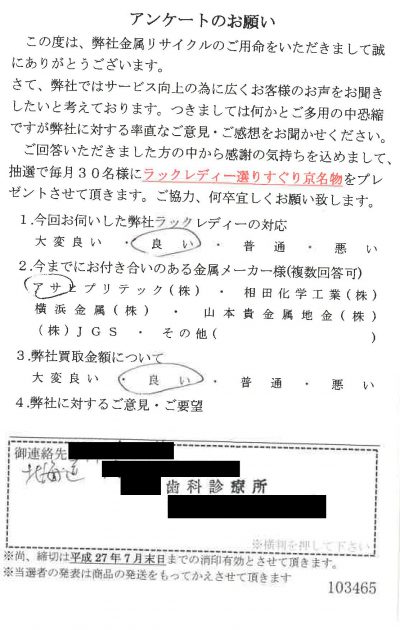 アンケートのお願い
この度は、弊社金属リサイクルのご用命をいただきまして誠
にありがとうございます。
さて、弊社ではサービス向上の為に広くお客様のお声をお聞き
したいと考えております。つきましては何かとご多用の中恐縮
ですが弊社に対する率直なご意見・ご感想をお聞かせください。
ご回答いただきました方の中から感謝の気持ちを込めまして、
抽選で毎月30名様にラックレディー選りすぐり京名物をプレ
ゼントさせて頂きます。ご協力、何卒宜しくお願い致します。
1.今回お伺いした弊社ラックレディーの対応
大変良い ・ 良い ・ 普通 ・ 悪い
2.今までにお付き合いのある金属メーカー様(複数回答可)
アサヒプリテック(株) ・ 相田化学工業(株)
横浜金属(株) ・ 山本貴金属地金(株)
(株)JGS ・ その他( )
3.弊社買取金額について
大変良い ・ 良い ・ 普通 ・ 悪い
4.弊社に対するご意見・ご要望
御連絡先
北海道
歯科診療所
※横判を押して下さい
※尚、締切は平成27年7月末日までの消印有効とさせて頂きます。
※当選者の発表は商品の発送をもってかえさせて頂きます
103465